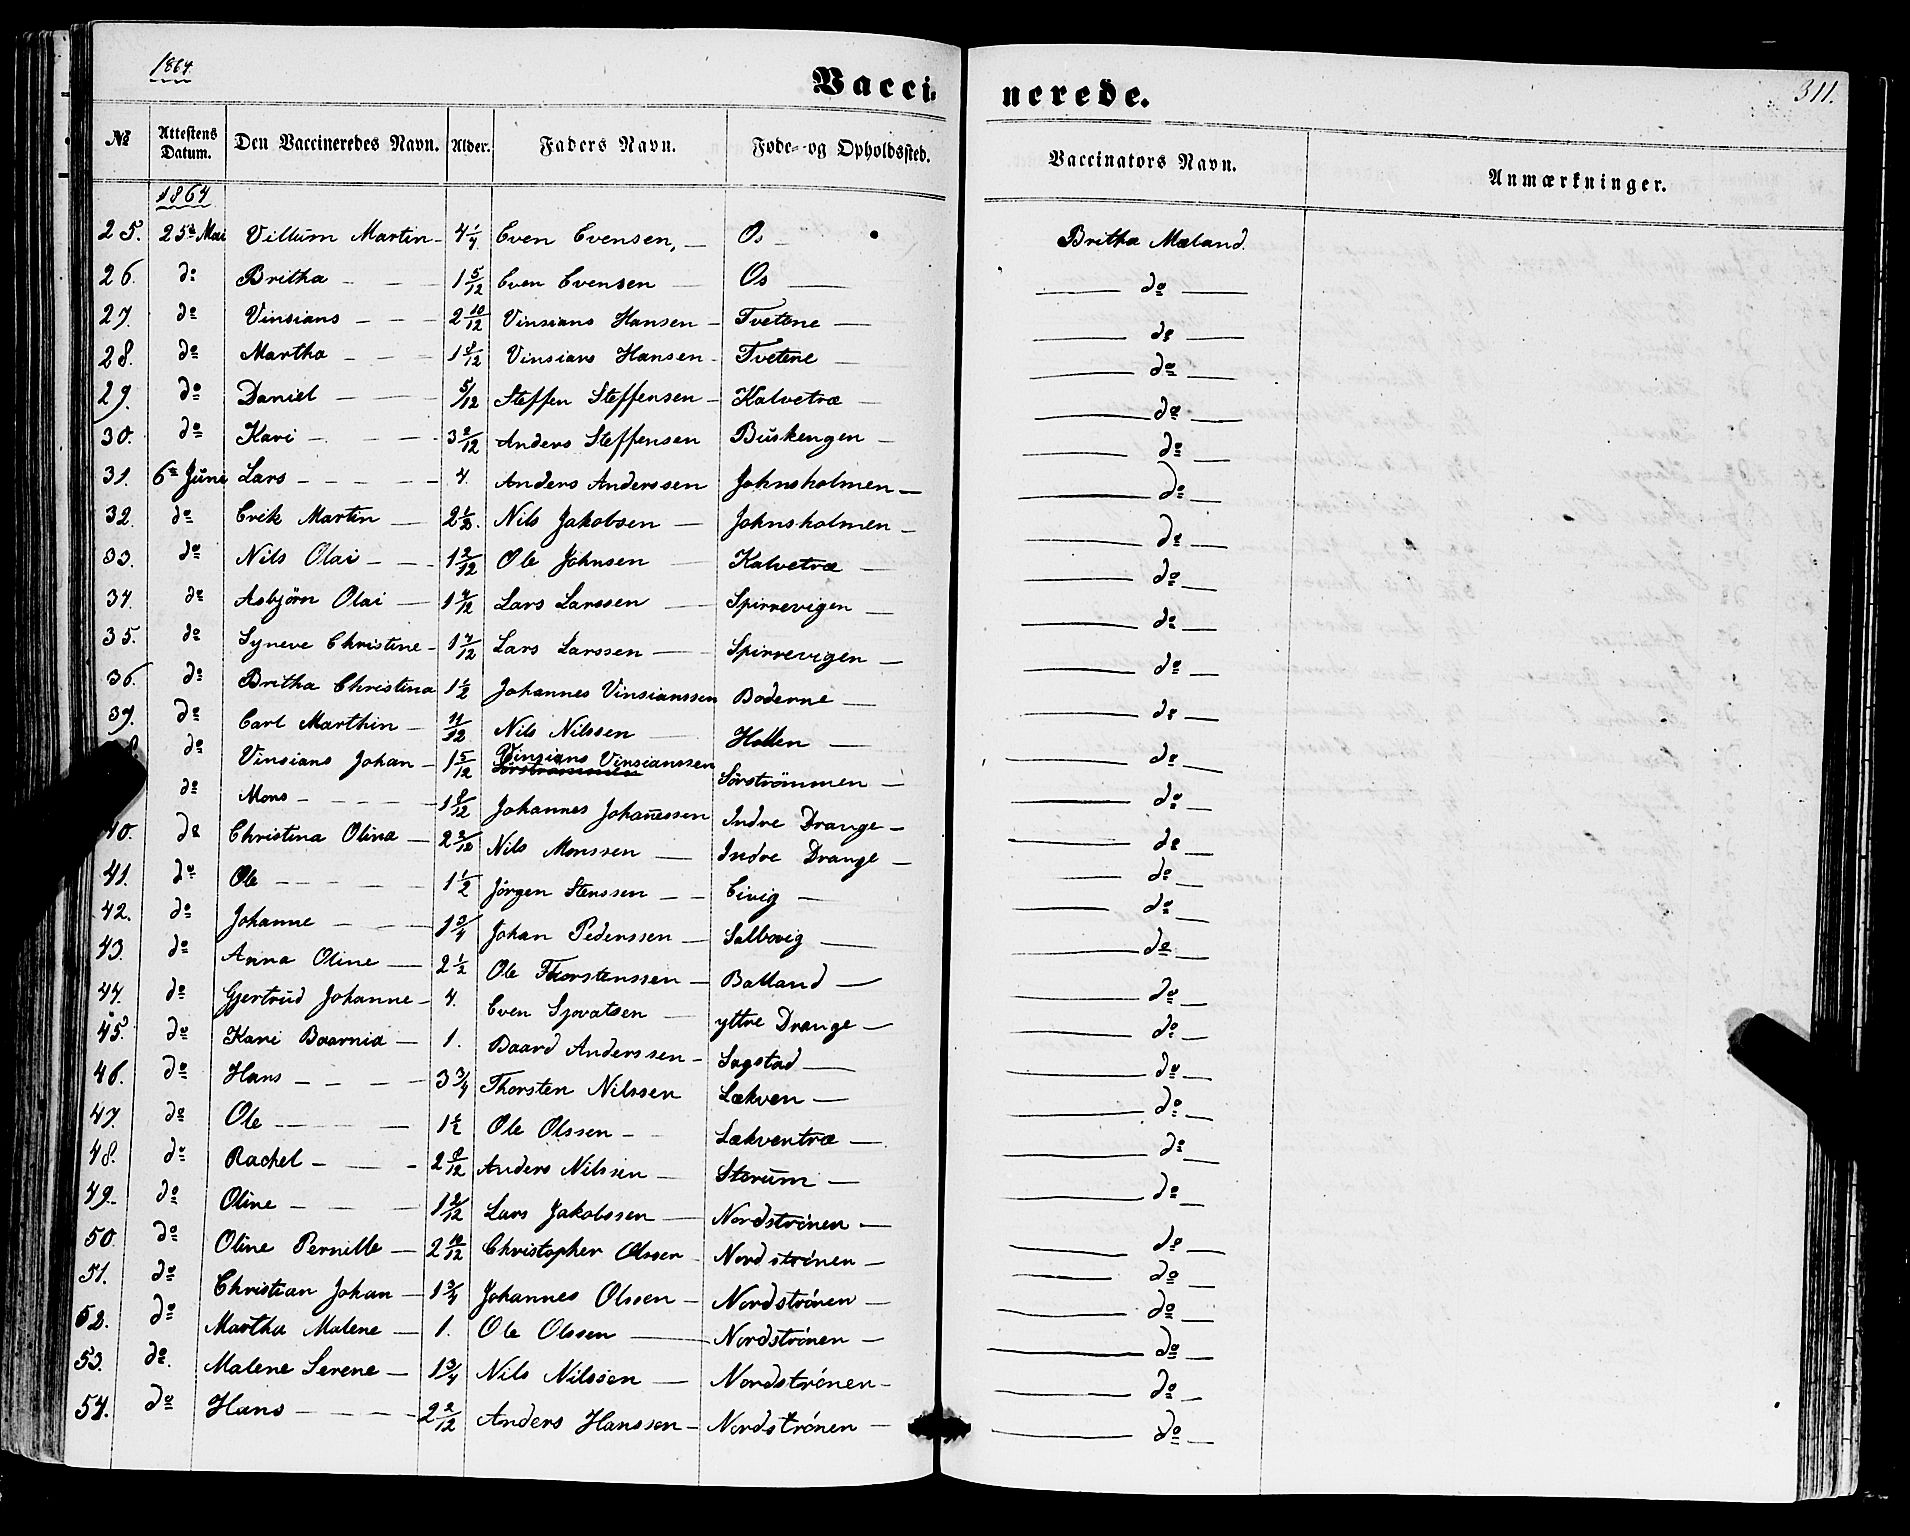 1864.
Vacci-
nerede.
311.
№ Attestens Datum. Den Vaccineredes Navn. Alder. Faders Navn. Føde- og Opholdssted. Vaccinators Navn. Anmærkninger.
1864
25. 25de Mai Villum Martin - 4 1/4 Even Evensen, — Os — Britha Mæland.
26. do Britha - - - 1 5/12 Even Evensen — Os — — do —
27. do Vinsians - - - 2 10/12 Vinsians Hansen - Tvetene — — do —
28. do Martha - - - 1 8/12 Vinsians Hansen - Tvetene — — do —
29. do Daniel - - - 5/12 Steffen Steffensen - Kalvetræ — — do —
30. do Kari - - - 3 2/12 Anders Steffensen Buskengen — — do —
31. 6te Juni Lars - - - - 4. Anders Anderssen Johnsholmen — — do —
32. do Erik Martin — 2 1/2. Nils Jakobsen — Johnsholmen — — do —
33. do Nils Olai - - - 1 2/12 Ole Johnsen — Kalvetræ — — do —
34. do Asbjörn Olai — 1 7/12 Lars Larssen — Spirrevigen — — do —
35. do Syneve Christine - 1 7/12 Lars Larssen — Spirrevigen — — do —
36. do Britha Christina 1 1/2 Johannes Vinsianssen Boderne — — do —
37. do Carl Marthin — 11/12 Nils Nilssen — Hollen — — do —
8 do Vinsians Johan - 1 5/12 Vinsians Vinsianssen Sörströmmen — — do —
Sörströmmen
do Mons - - - - 1 8/12 Johannes Johanessen Indre Drange — — do —
40. do Christina Olina — 2 2/12 Nils Monssen — Indre Drange — — do —
41. do Ole - - - - 1 1/2 Jörgen Stenssen - - Eivig — — do —
42. do Johanne - - - 1 3/4 Johan Pederssen — Salbovig — — do —
43. do Anna Oline — 2 1/2 Ole Thorstenssen — Balland — — do —
44. do Gjertrud Johanne - 4. Even Sjovatsen — yttre Drange — — do —
45. do Kari Baarnia — 1. Baard Anderssen - Sagstad — — do —
46. do Hans - - - - 3 3/4 Thorsten Nilssen Lækven — — do —
47. do Ole - - - - 1 1/2 Ole Olssen - Lækventræ — — do —
48. do Rachel - - - 2 8/12 Anders Nilssen — Storum — — do —
49. do Oline - - - 1 2/12 Lars Jakobssen — Nordströnen — — do —
50. do Oline Pernille — 2 10/12 Christopher Olssen - Nordströnen — — do —
51. do Christian Johan — 1 3/4 Johannes Olssen — Nordströnen — — do —
52. do Martha Malene — 1. Ole Olssen — Nordströnen — — do —
53. do. Malene Serene — 1 3/4 Nils Nilssen — Nordströnen - — do —
54. do Hans - - - - 2 2/12 Anders Hanssen — Nordströnen — — do —